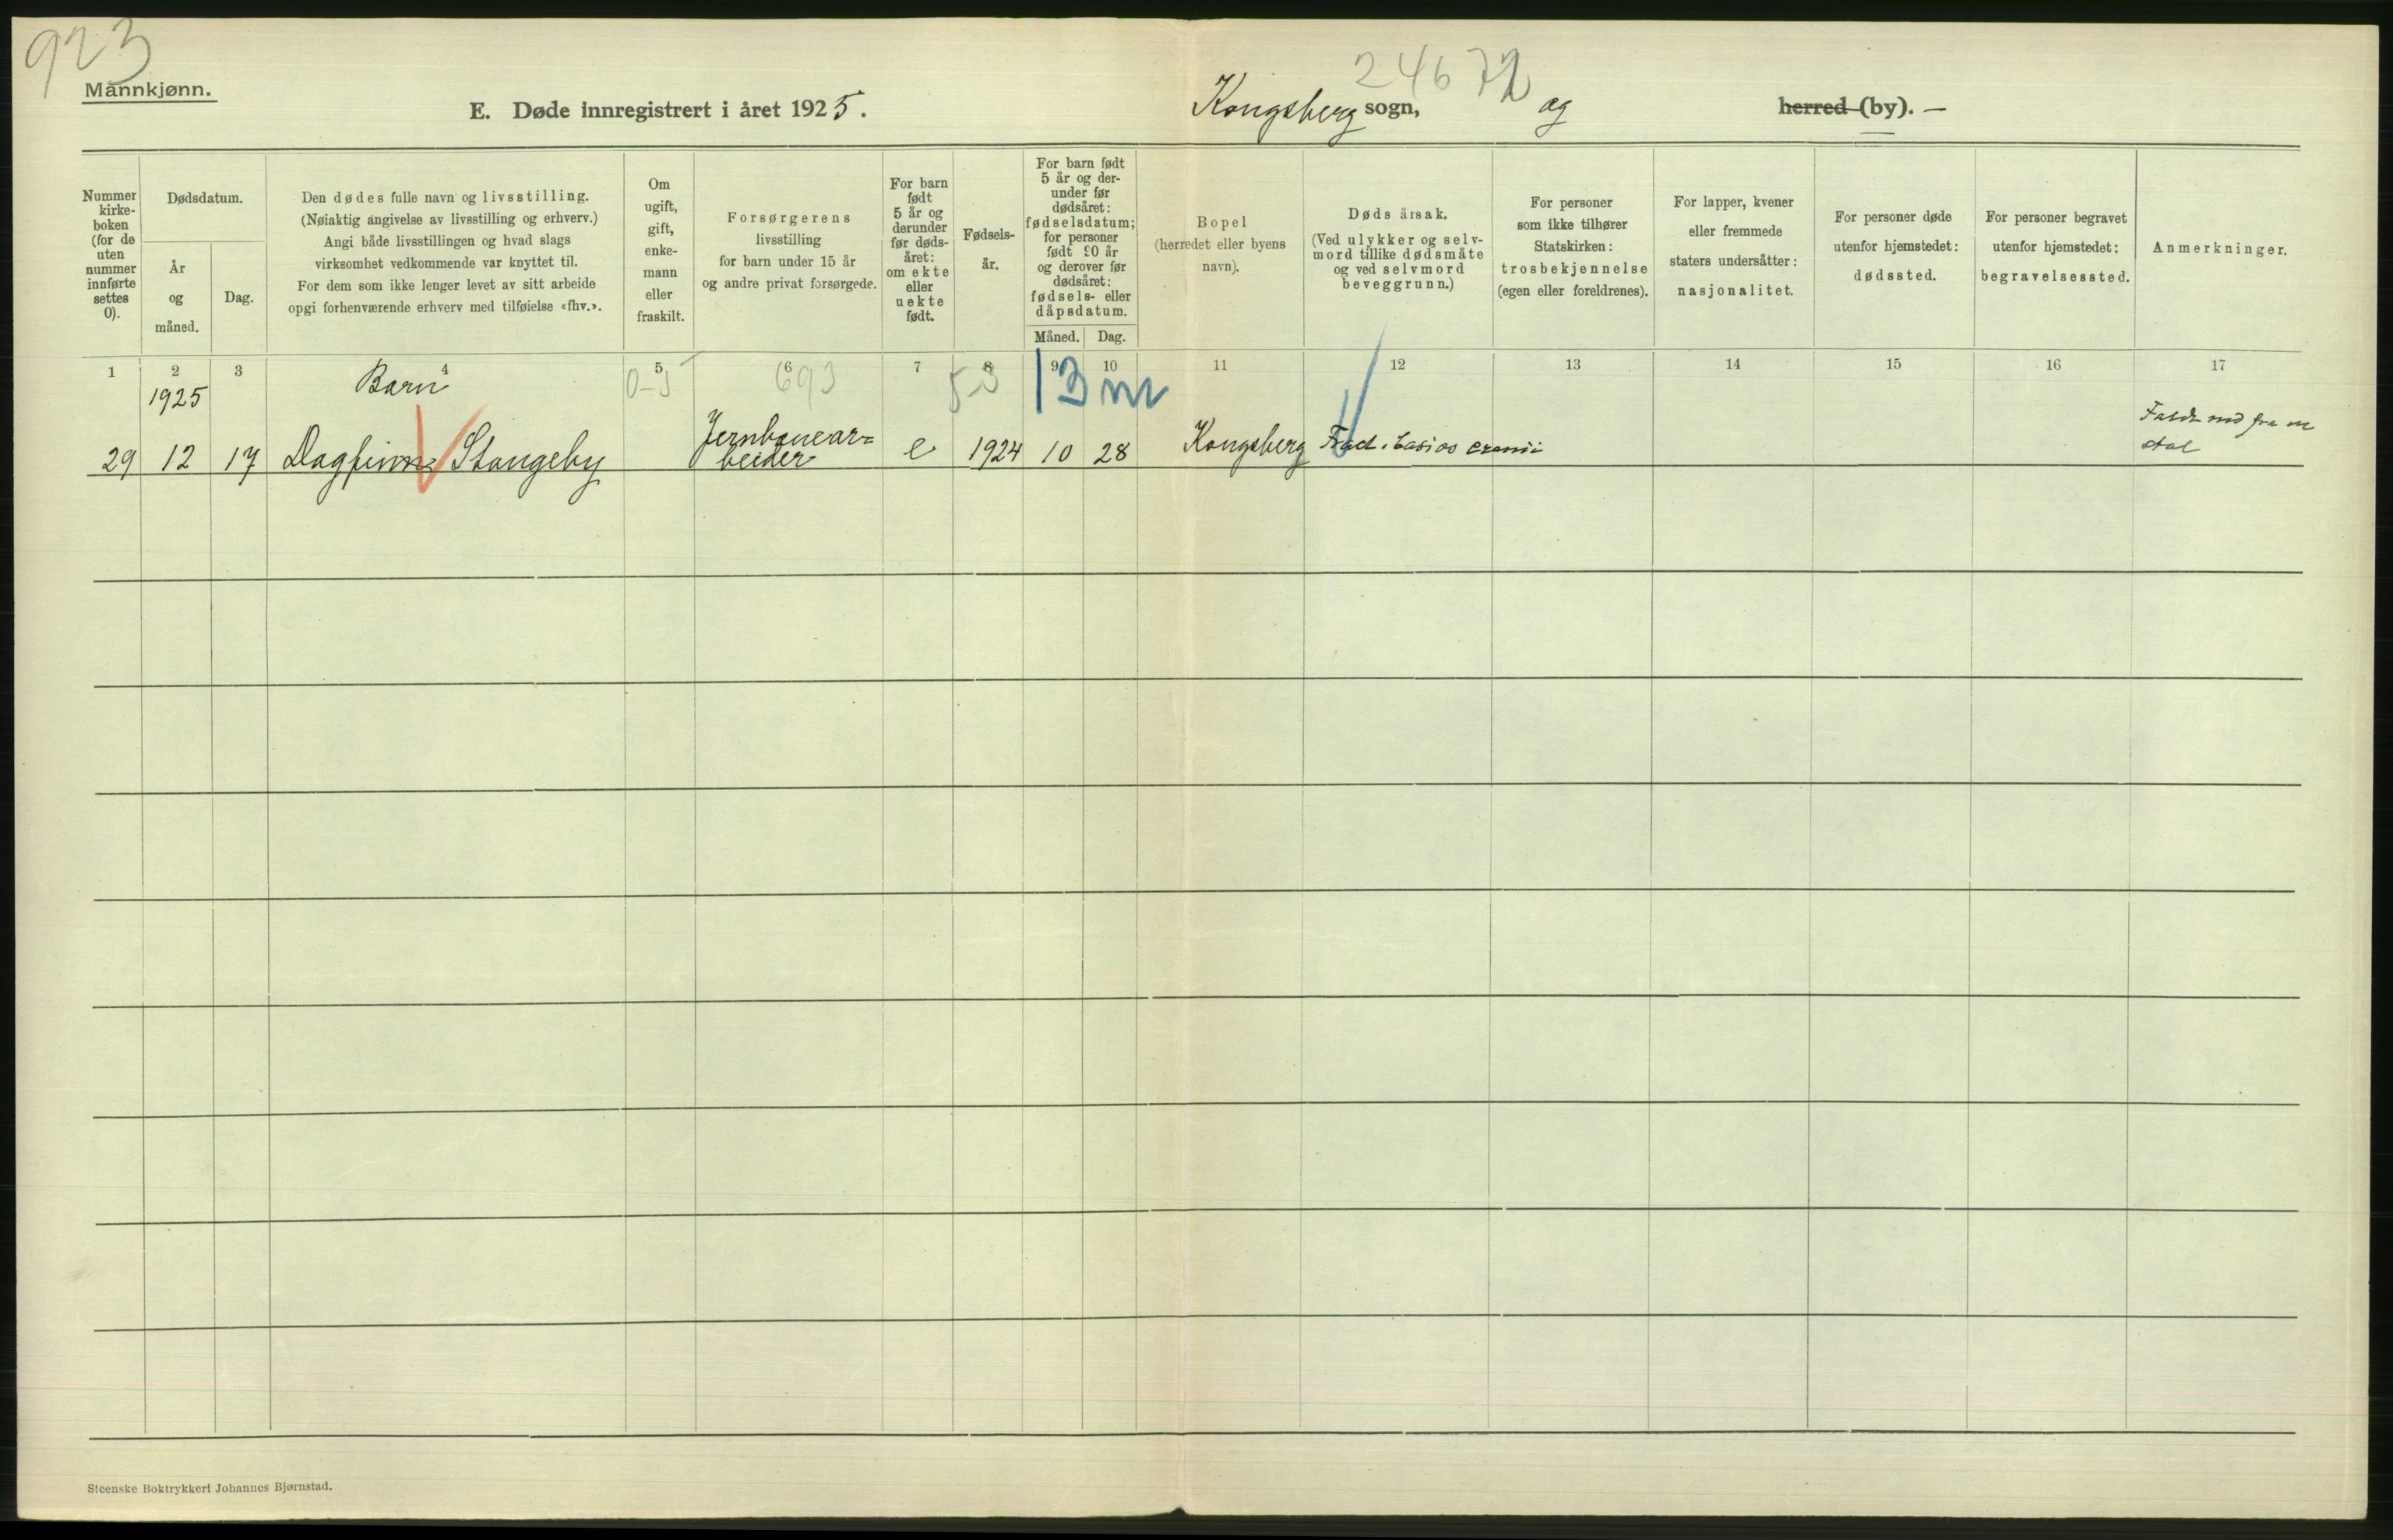 923
24672
Mannkjønn.
E. Døde innregistrert i året 1925.
Kongsberg sogn, og herred (by). —
Nummer
kirke-
boken
(for de
uten
nummer
innførte
settes
0).
Dødsdatum.
År
og
måned.
Dag.
Den dødes fulle navn og livsstilling.
(Nøiaktig angivelse av livsstilling og erhverv.)
Angi både livsstillingen og hvad slags
virksomhet vedkommende var knyttet til.
For dem som ikke lenger levet av sitt arbeide
opgi forhenværende erhverv med tilføielse «fhv.».
Om
ugift,
gift,
enke-
mann
eller
fraskilt.
Forsørgerens
livsstilling
for barn under 15 år
og andre privat forsørgede.
For barn
født
5 år og
derunder
før døds-
året:
om ekte
eller
uekte
født.
Fødsels-
år.
For barn født
5 år og der-
under før
dødsåret:
fødselsdatum;
for personer
født 90 år
og derover før
dødsåret:
fødsels- eller
dåpsdatum.
Måned.
Dag.
Bopel
(herredet eller byens
navn).
Døds årsak.
(Ved ulykker og selv-
mord tillike dødsmåte
og ved selvmord
beveggrunn.)
For personer
som ikke tilhører
Statskirken:
trosbekjennelse
(egen eller foreldrenes).
For lapper, kvener
eller fremmede
staters undersåtter:
nasjonalitet.
For personer døde
utenfor hjemstedet:
dødssted.
For personer begravet
utenfor hjemstedet:
begravelsessted.
Anmerkninger.
1 2 3 4 5 6 7 8 9 10 11 12 13 14 15 16 17
1925 Barn 0-5 693 13 m
Jernbanear= Faldt ned fra en
29 12 17 Dagfinn Stangeby beider e 1924 10 28 Kongsberg Fract. basios cranii stol
Steenske Boktrykkeri Johannes Bjørnstad.